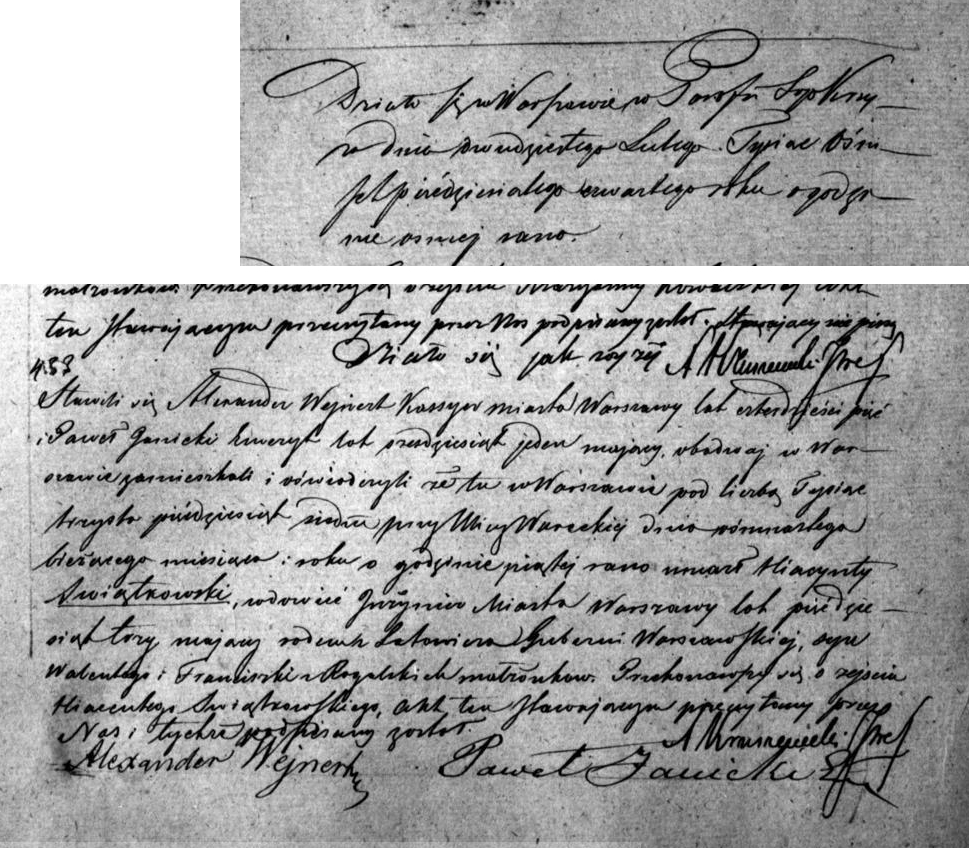 Działo się w Warszawie w Parafii Sgo Krzy-
ża dnia dwudziestego Lutego Tysiąc Ośm
set pięćdziesiątego czwartego roku o godzi-
nie osmej rano.
małżonków. Przekonawszy się o zejściu Kowalskiej Akt
ten Stawającym przeczytany przez Nas podpisany został. Stawający nie piszą
Działo się jak wyżej
453
Stawili się Alexander Wejnert Kassyer miasta Warszawy lat czterdzieści pięć
i Paweł Janicki Emeryt lat sześćdziesiąt jeden mający, obadwaj w War-
szawie zamieszkali i oświadczyli że tu w Warszawie pod liczbą Tysiąc
trzysta pięćdziesiąt siedm przy Ulicy Wareckiej dnia ośmnastego
bieżącego miesiąca i roku o godzinie piątej rano umarł Hiacynty
Świątkowski, wdowiec Inżynier Miasta Warszawy lat pięćdzie-
siąt trzy mający rodem z Latowicza Gubernii Warszawskiej, syn
Walentego i Franciszki z Rogalskich małżonków. Przekonawszy się o zejściu
Hiacentego Świątkowskiego, akt ten Stawającym przeczytany przez
Nas i tychże podpisany został.
Alexander Wejnert Paweł Janicki